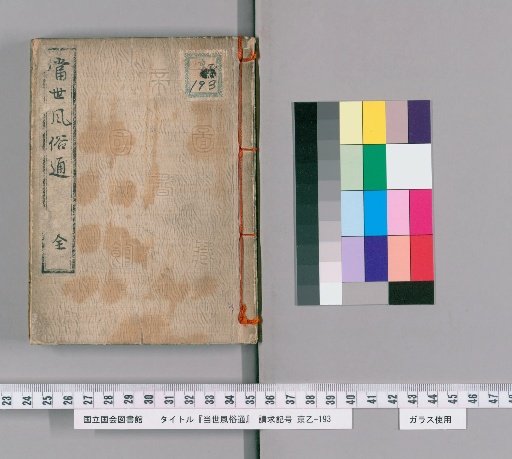 當世風俗通 全
193
23 24 25 26 27 28 29 30 31 32 33 34 35 36 37 38 39 40 41 42 43 44 45 46 47
国立国会図書館 タイトル『当世風俗通』 請求記号 京乙-193
ガラス使用